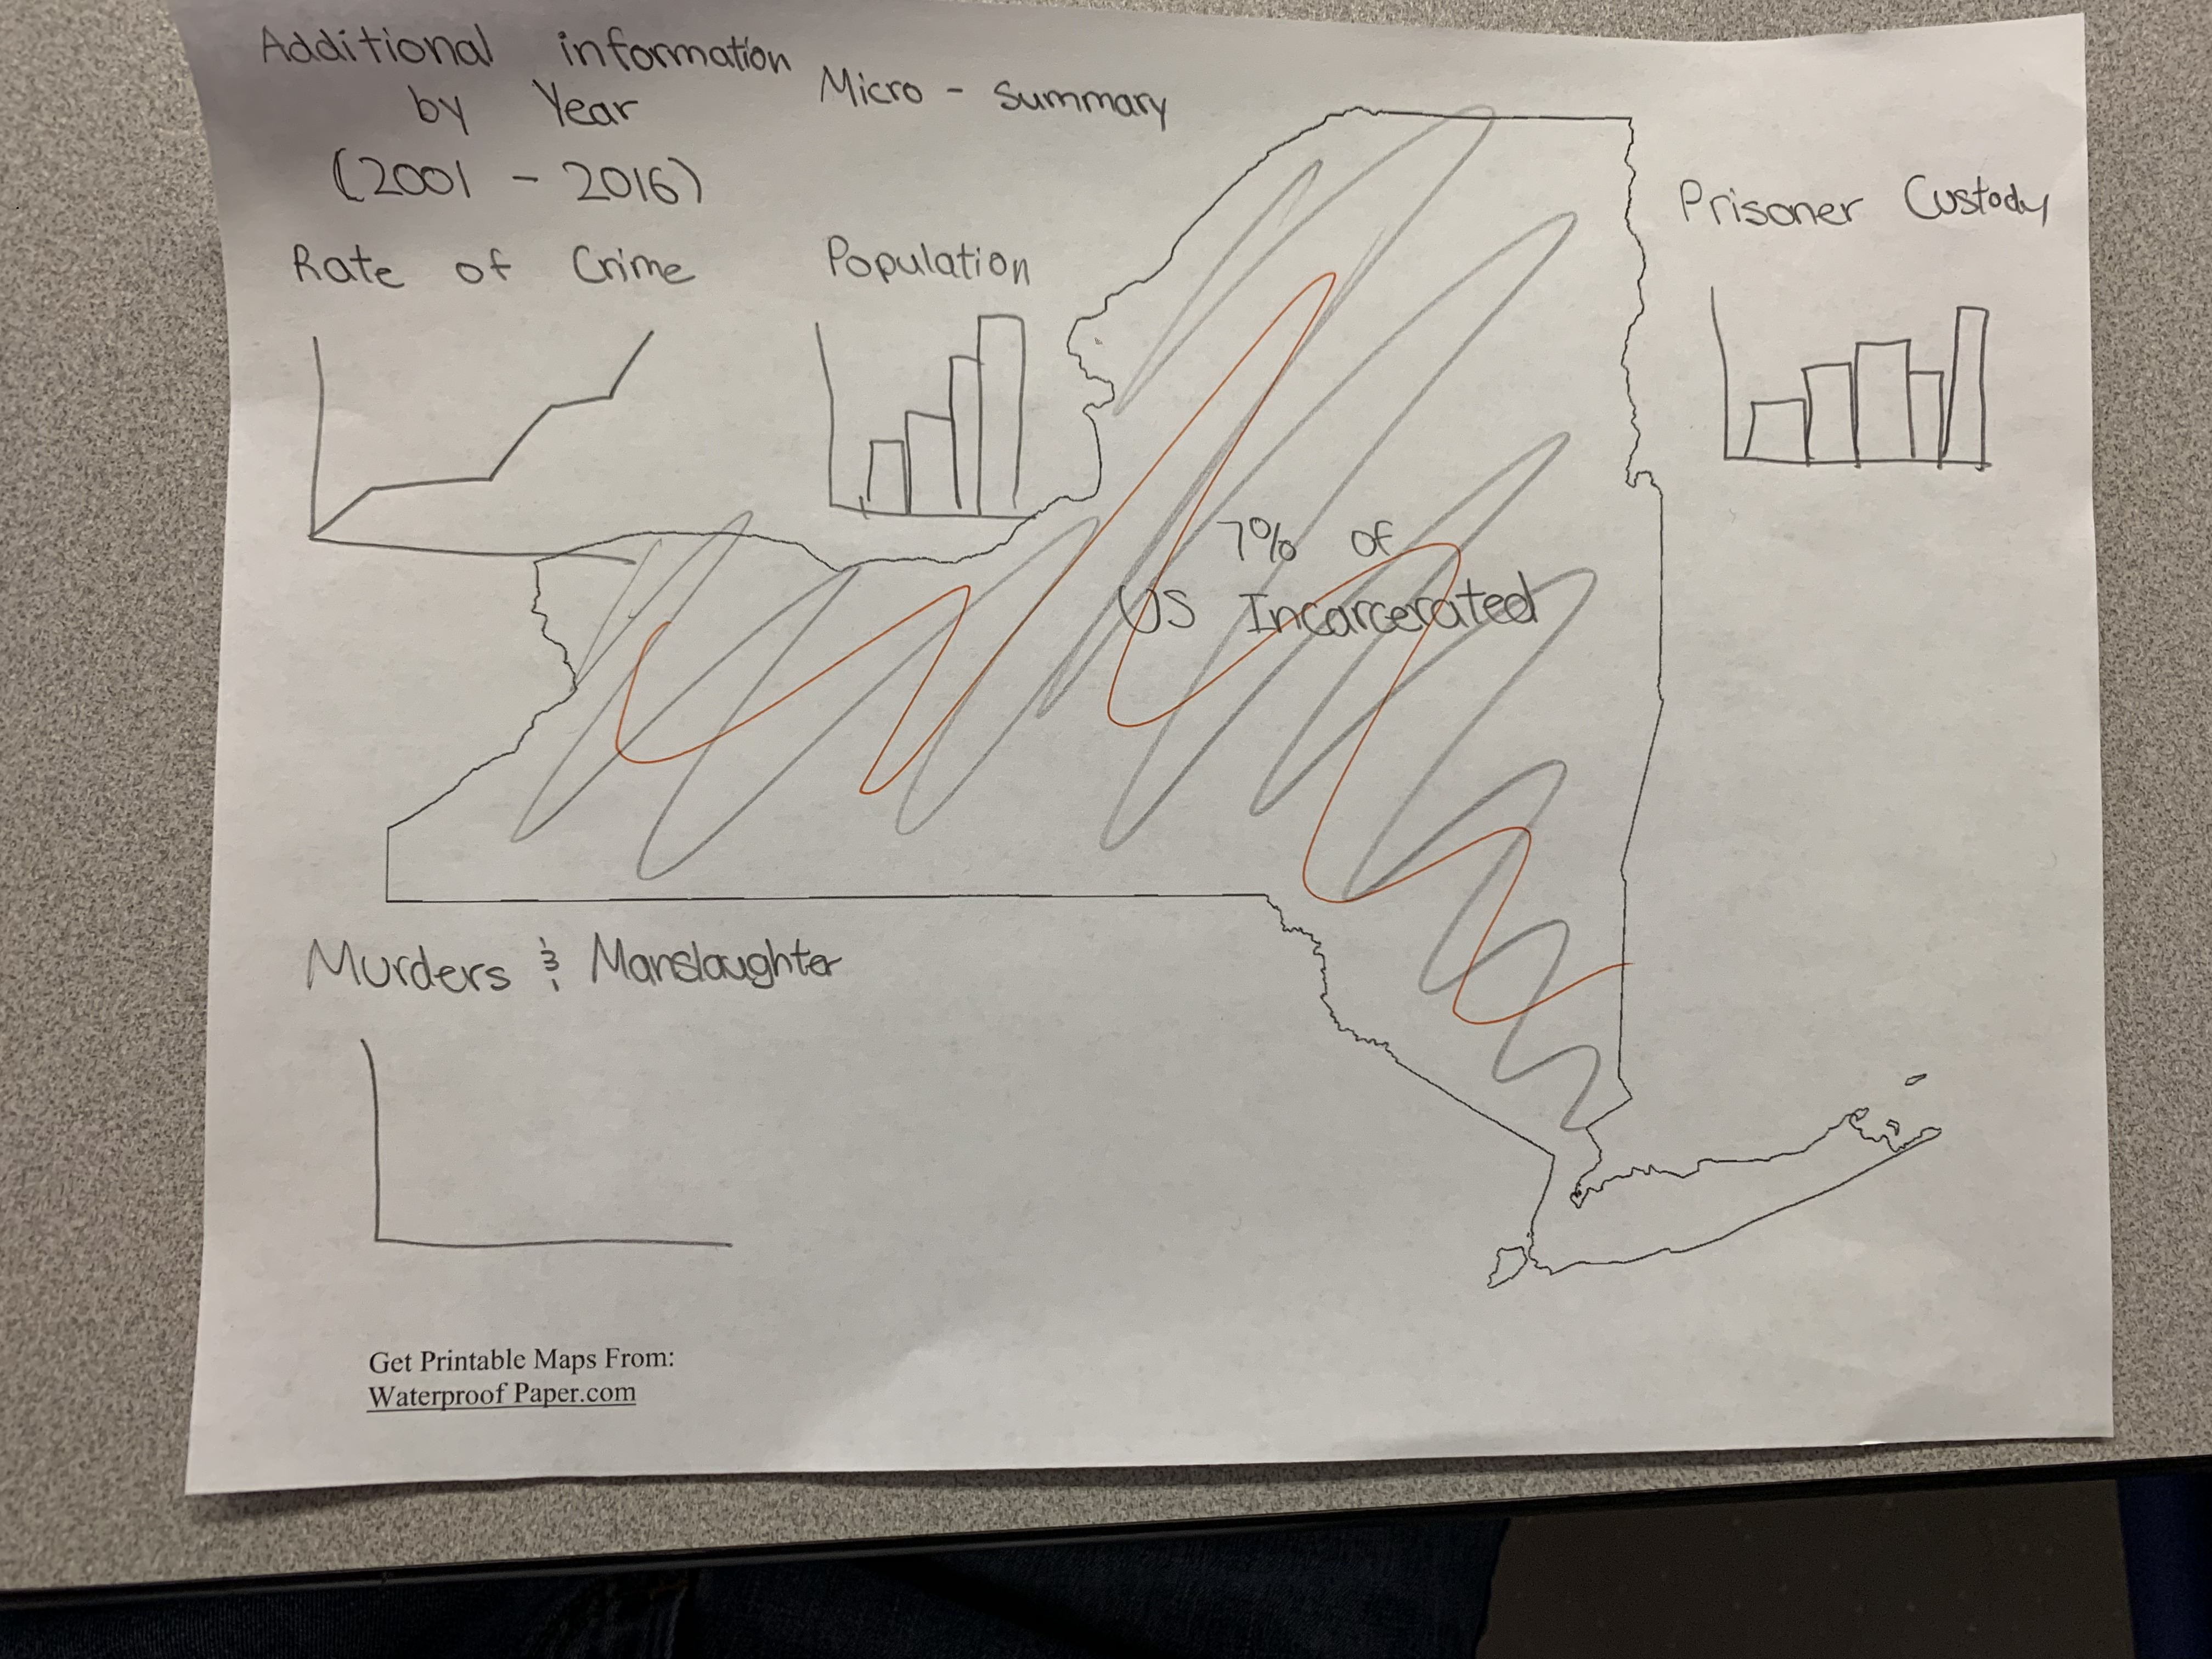 Additional information
by Year
(2001 - 2016)
Micro - Summary
Rate of Crime
Population
Prisoner Custody
7% of
US Incarcerated
Murders & Manslaughter
Get Printable Maps From:
Waterproof Paper.com